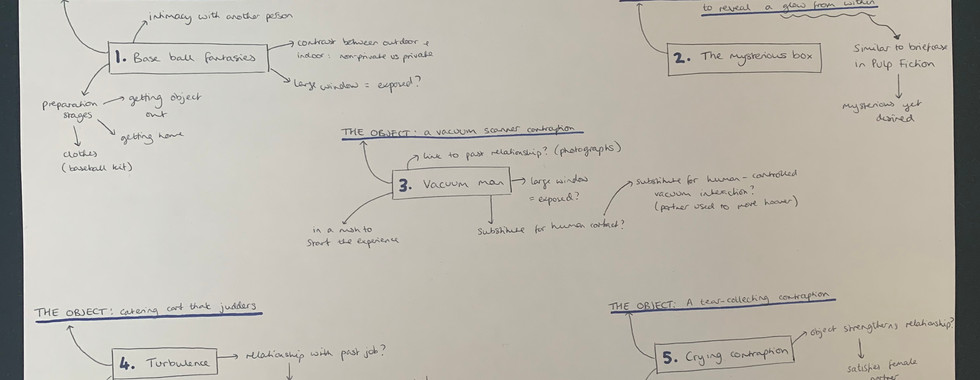 to reveal a glow from within
intimacy with another person
1. Base ball fantasies
contrast between outdoor +
indoor: non-private vs private
large window = exposed?
preparation
stages
getting object
out
getting home
clothes
(baseball kit)
2. The mysterious box
Similar to briefcase
in Pulp Fiction
mysterious yet
desired
THE OBJECT: a vacuum scanner contraption
link to past relationship? (photographs)
3. Vacuum man
large window
= exposed?
in a rush to
start the experience
substitute for human contact?
substitute for human-controlled
vacuum interaction?
(partner used to move hoover)
THE OBJECT: catering cart that judders
4. Turbulence
relationship with past job?
THE OBJECT: A tear-collecting contraption
5. Crying contraption
object strengthens relationship?
satisfies female
partner